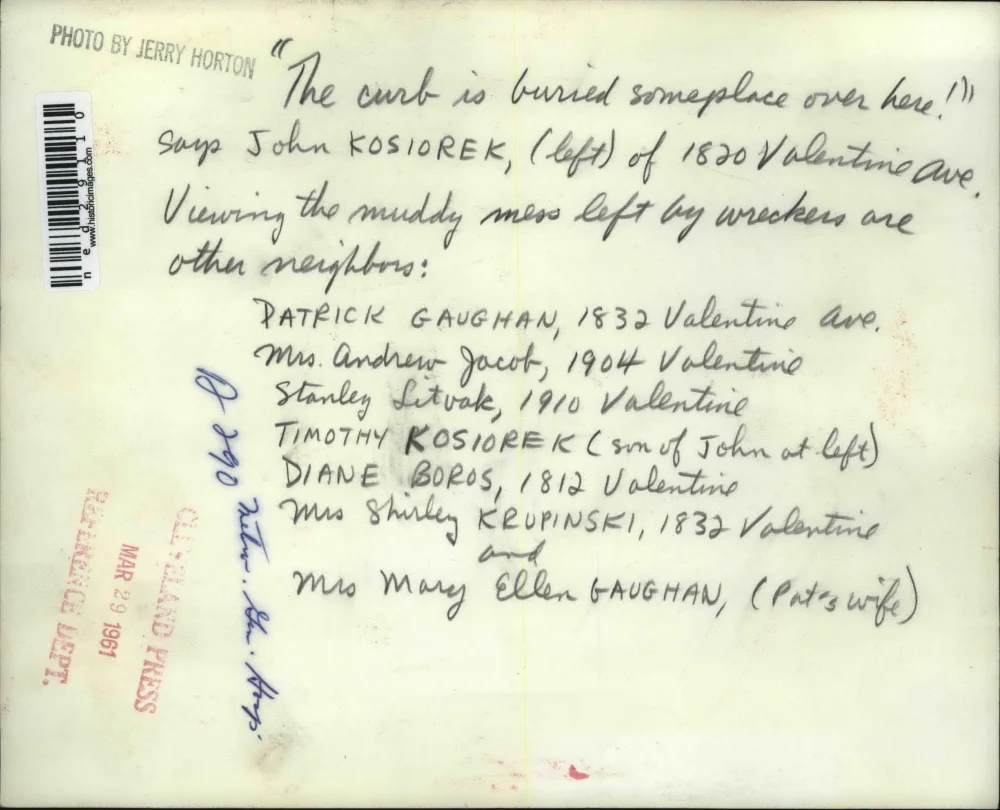 PHOTO BY JERRY HORTON
"The curb is buried someplace over here!"
says John KOSIOREK, (left) of 1820 Valentine Ave.
Viewing the muddy mess left by wreckers are
other neighbors:
PATRICK GAUGHAN, 1832 Valentine Ave.
Mrs. Andrew Jacob, 1904 Valentine
Stanley Litvak, 1910 Valentine
TIMOTHY KOSIOREK (son of John at left)
DIANE BOROS, 1812 Valentine
Mrs Shirley KRUPINSKI, 1832 Valentine
and
Mrs Mary Ellen GAUGHAN, (Pat's wife)
ned29110
www.historicimages.com
290 Metro. Gen. Hosp.
CLEVELAND PRESS
MAR 29 1961
REFERENCE DEPT.